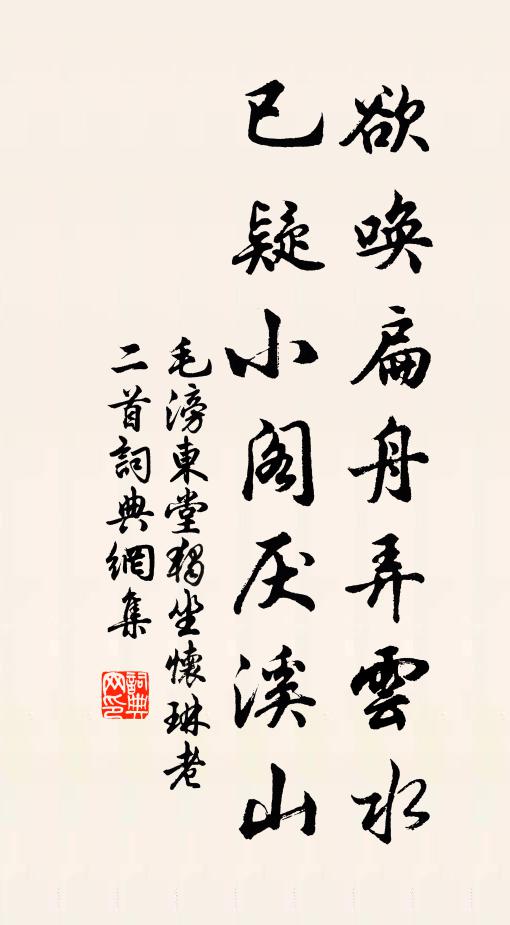 欲喚扁舟弄雲水
已疑小閣厌溪山
毛滂東堂獨坐懷琳老
二首詞典網集
詞典网印